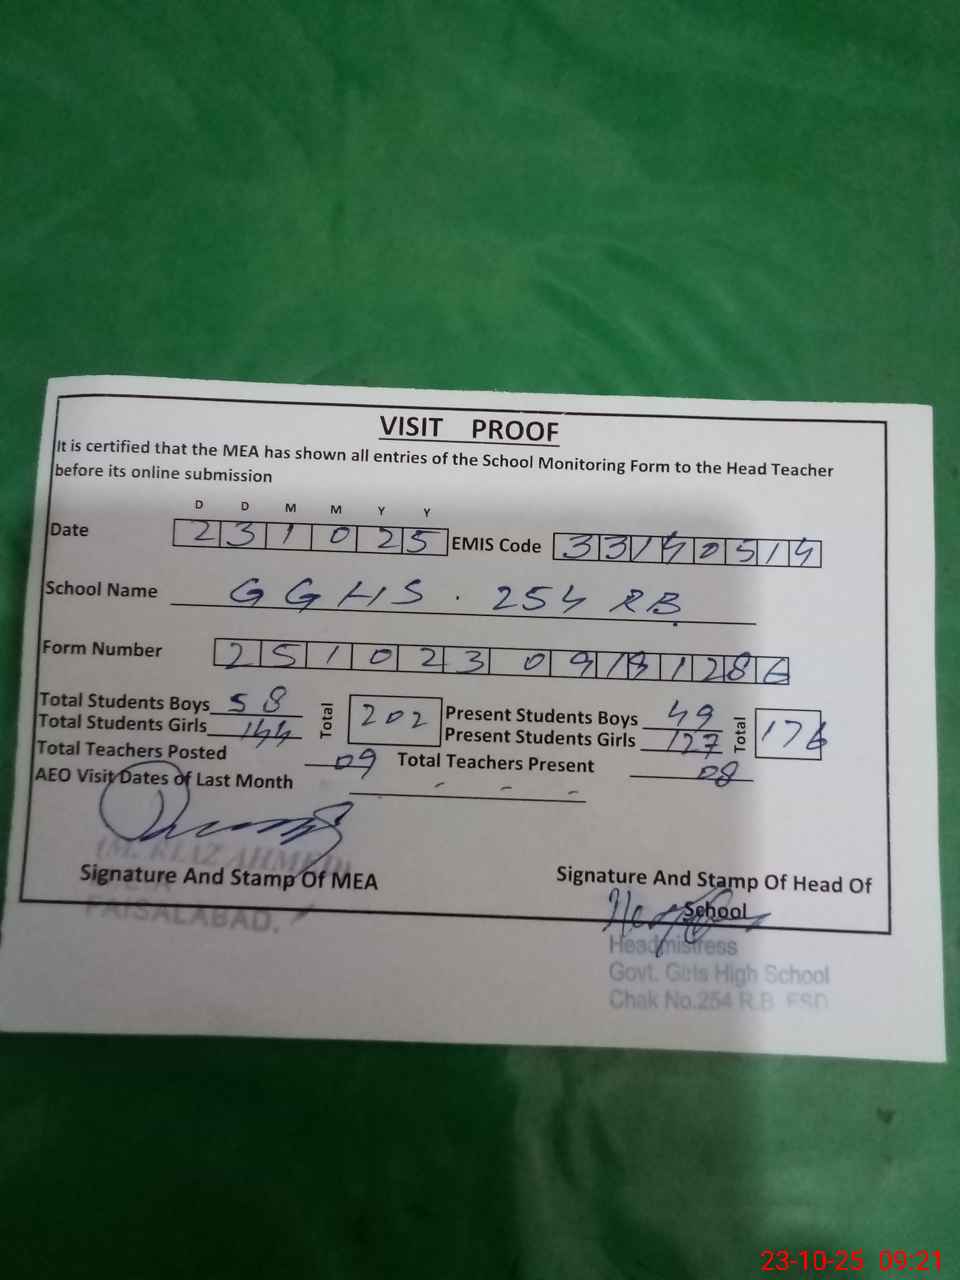 VISIT PROOF
It is certified that the MEA has shown all entries of the School Monitoring Form to the Head Teacher
before its online submission
D D M M Y Y
Date 231025 EMIS Code 33140514
School Name GGHS. 254 RB
Form Number 2510230
Total Students Boys 58 Total 202 Present Students Boys 49 Total 176
Total Students Girls 144 Present Students Girls 127
Total Teachers Posted 09 Total Teachers Present 08
AEO Visit Dates of Last Month - - -
(M. RIAZ AHMED)
Signature And Stamp Of MEA
FAISALABAD.
Signature And Stamp Of Head Of
School
Headmistress
Govt. Girls High School
Chak No.254 R.B FSD
23-10-25 09:21